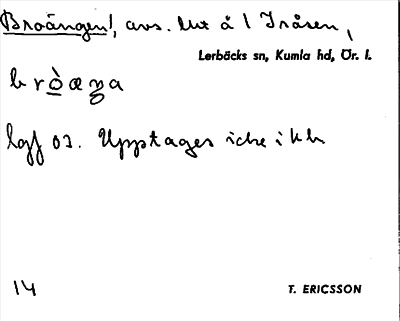 Broängen!, avs. Mt å 1 Tråsen,
Lerbäcks sn, Kumla hd, Ör. l.
b r ò æ ŋ a
lgf 03. Upptages icke i kb
14
T. ERICSSON